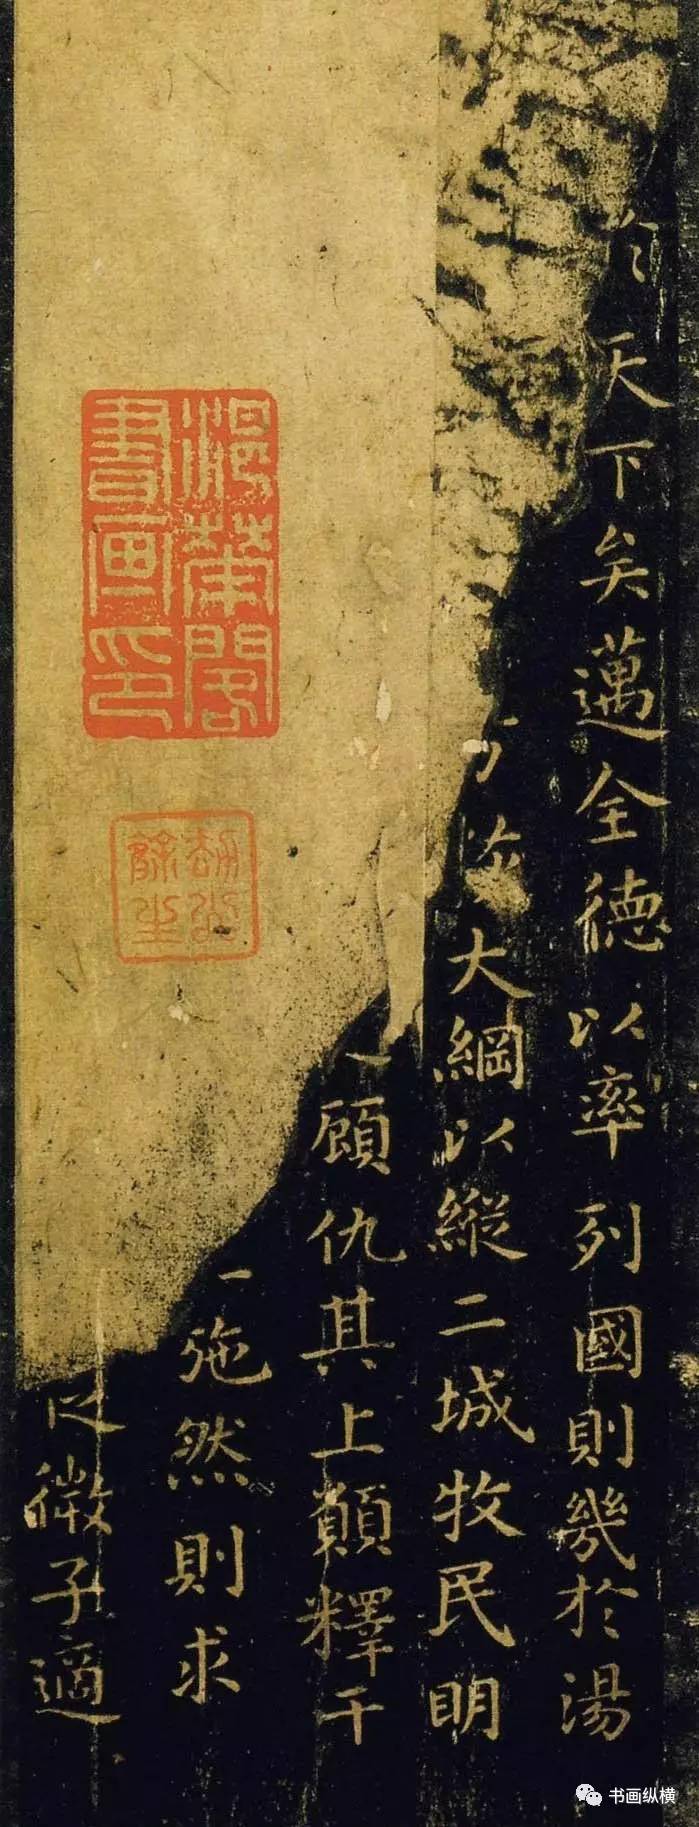 天下矣邁全德以率列國則幾於湯
大綱以縱二城牧民明
顧仇其上願釋干
施然則求
微子適
書畫印
餘生
书画纵横